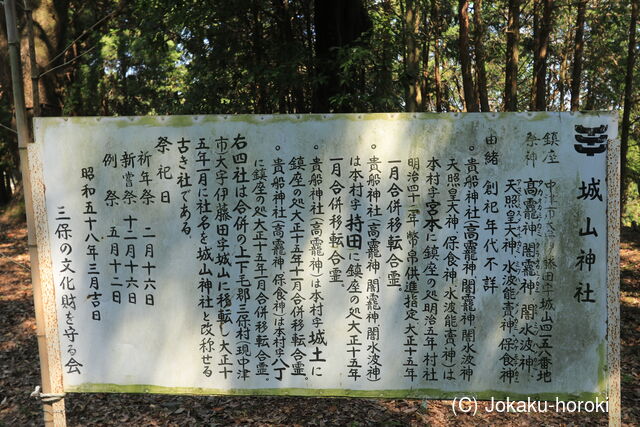 城山神社
鎮座 中津市大字伊藤田字城山四一五番地
祭神 高龗神、闇龗神、闇水波神、
天照皇大神、水波能賣神、保食神
由緒 創祀年代不詳
・貴船神社(高龗神、闇龗神、闇水波神
天照皇大神、保食神、水波能賣神)は
本村字宮本に鎮座の処明治五年村社
明治四十一年幣帛供進指定大正十五年
一月合併移転合霊。
・貴船神社(高龗神、闇龗神、闇水波神)
は本村字持田に鎮座の処大正十五年
一月合併移転合霊。
・貴船神社(高龗神)は本村字城土に
鎮座の処大正十五年十一月合併移転合霊。
・貴船神社(高龗神、保食神)は本村字八丁
に鎮座の処大正十五年一月合併移転合霊
右四社は合併の上下毛郡三保村(現中津
市)大字伊藤田字城山に移転し大正十
五年一月に社名を城山神社と改称せる
古き社である。
祭祀日
祈年祭 二月十六日
新嘗祭 十二月十六日
例祭 五月十二日
昭和五十八年三月吉日
三保の文化財を守る会
(C) Jokaku-horoki